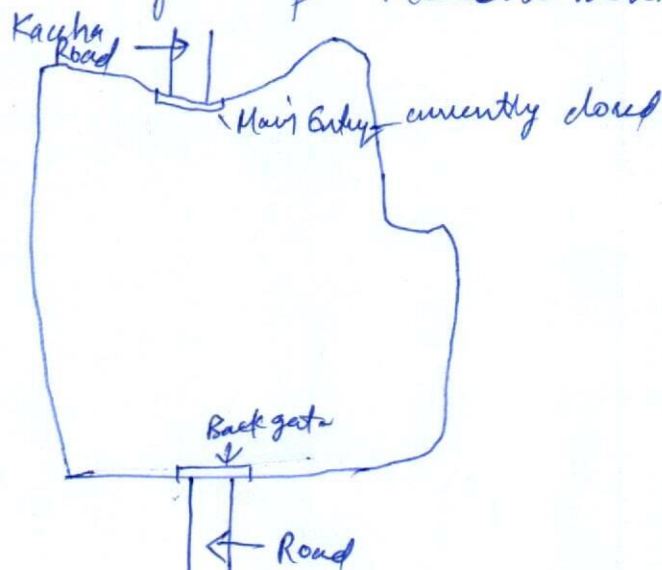 Kaccha
Road
Main Entry - currently closed
Back gate
Road